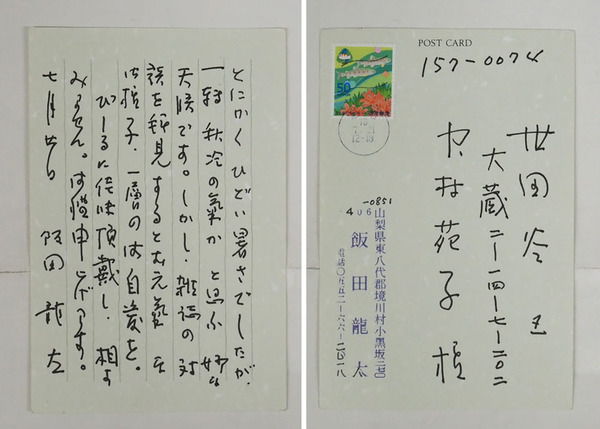 とにかくひどい暑さでしたが、
一転 秋冷の氣かと思ふ
天候です。しかし、雑誌の対
談を拝見するとお元氣そ
な様子、一層の御自愛を。
ビールに佳味頂戴し、相す
みません。御禮申上げます。
七月廿日 飯田龍太
POST CARD
157-0074
50
世田谷区
大蔵二ー一四ー七ー二〇二
中村苑子様
406-0851
山梨県東八代郡境川村小黒坂二七〇
飯田龍太
電話〇五五二ー六六ー二〇一八